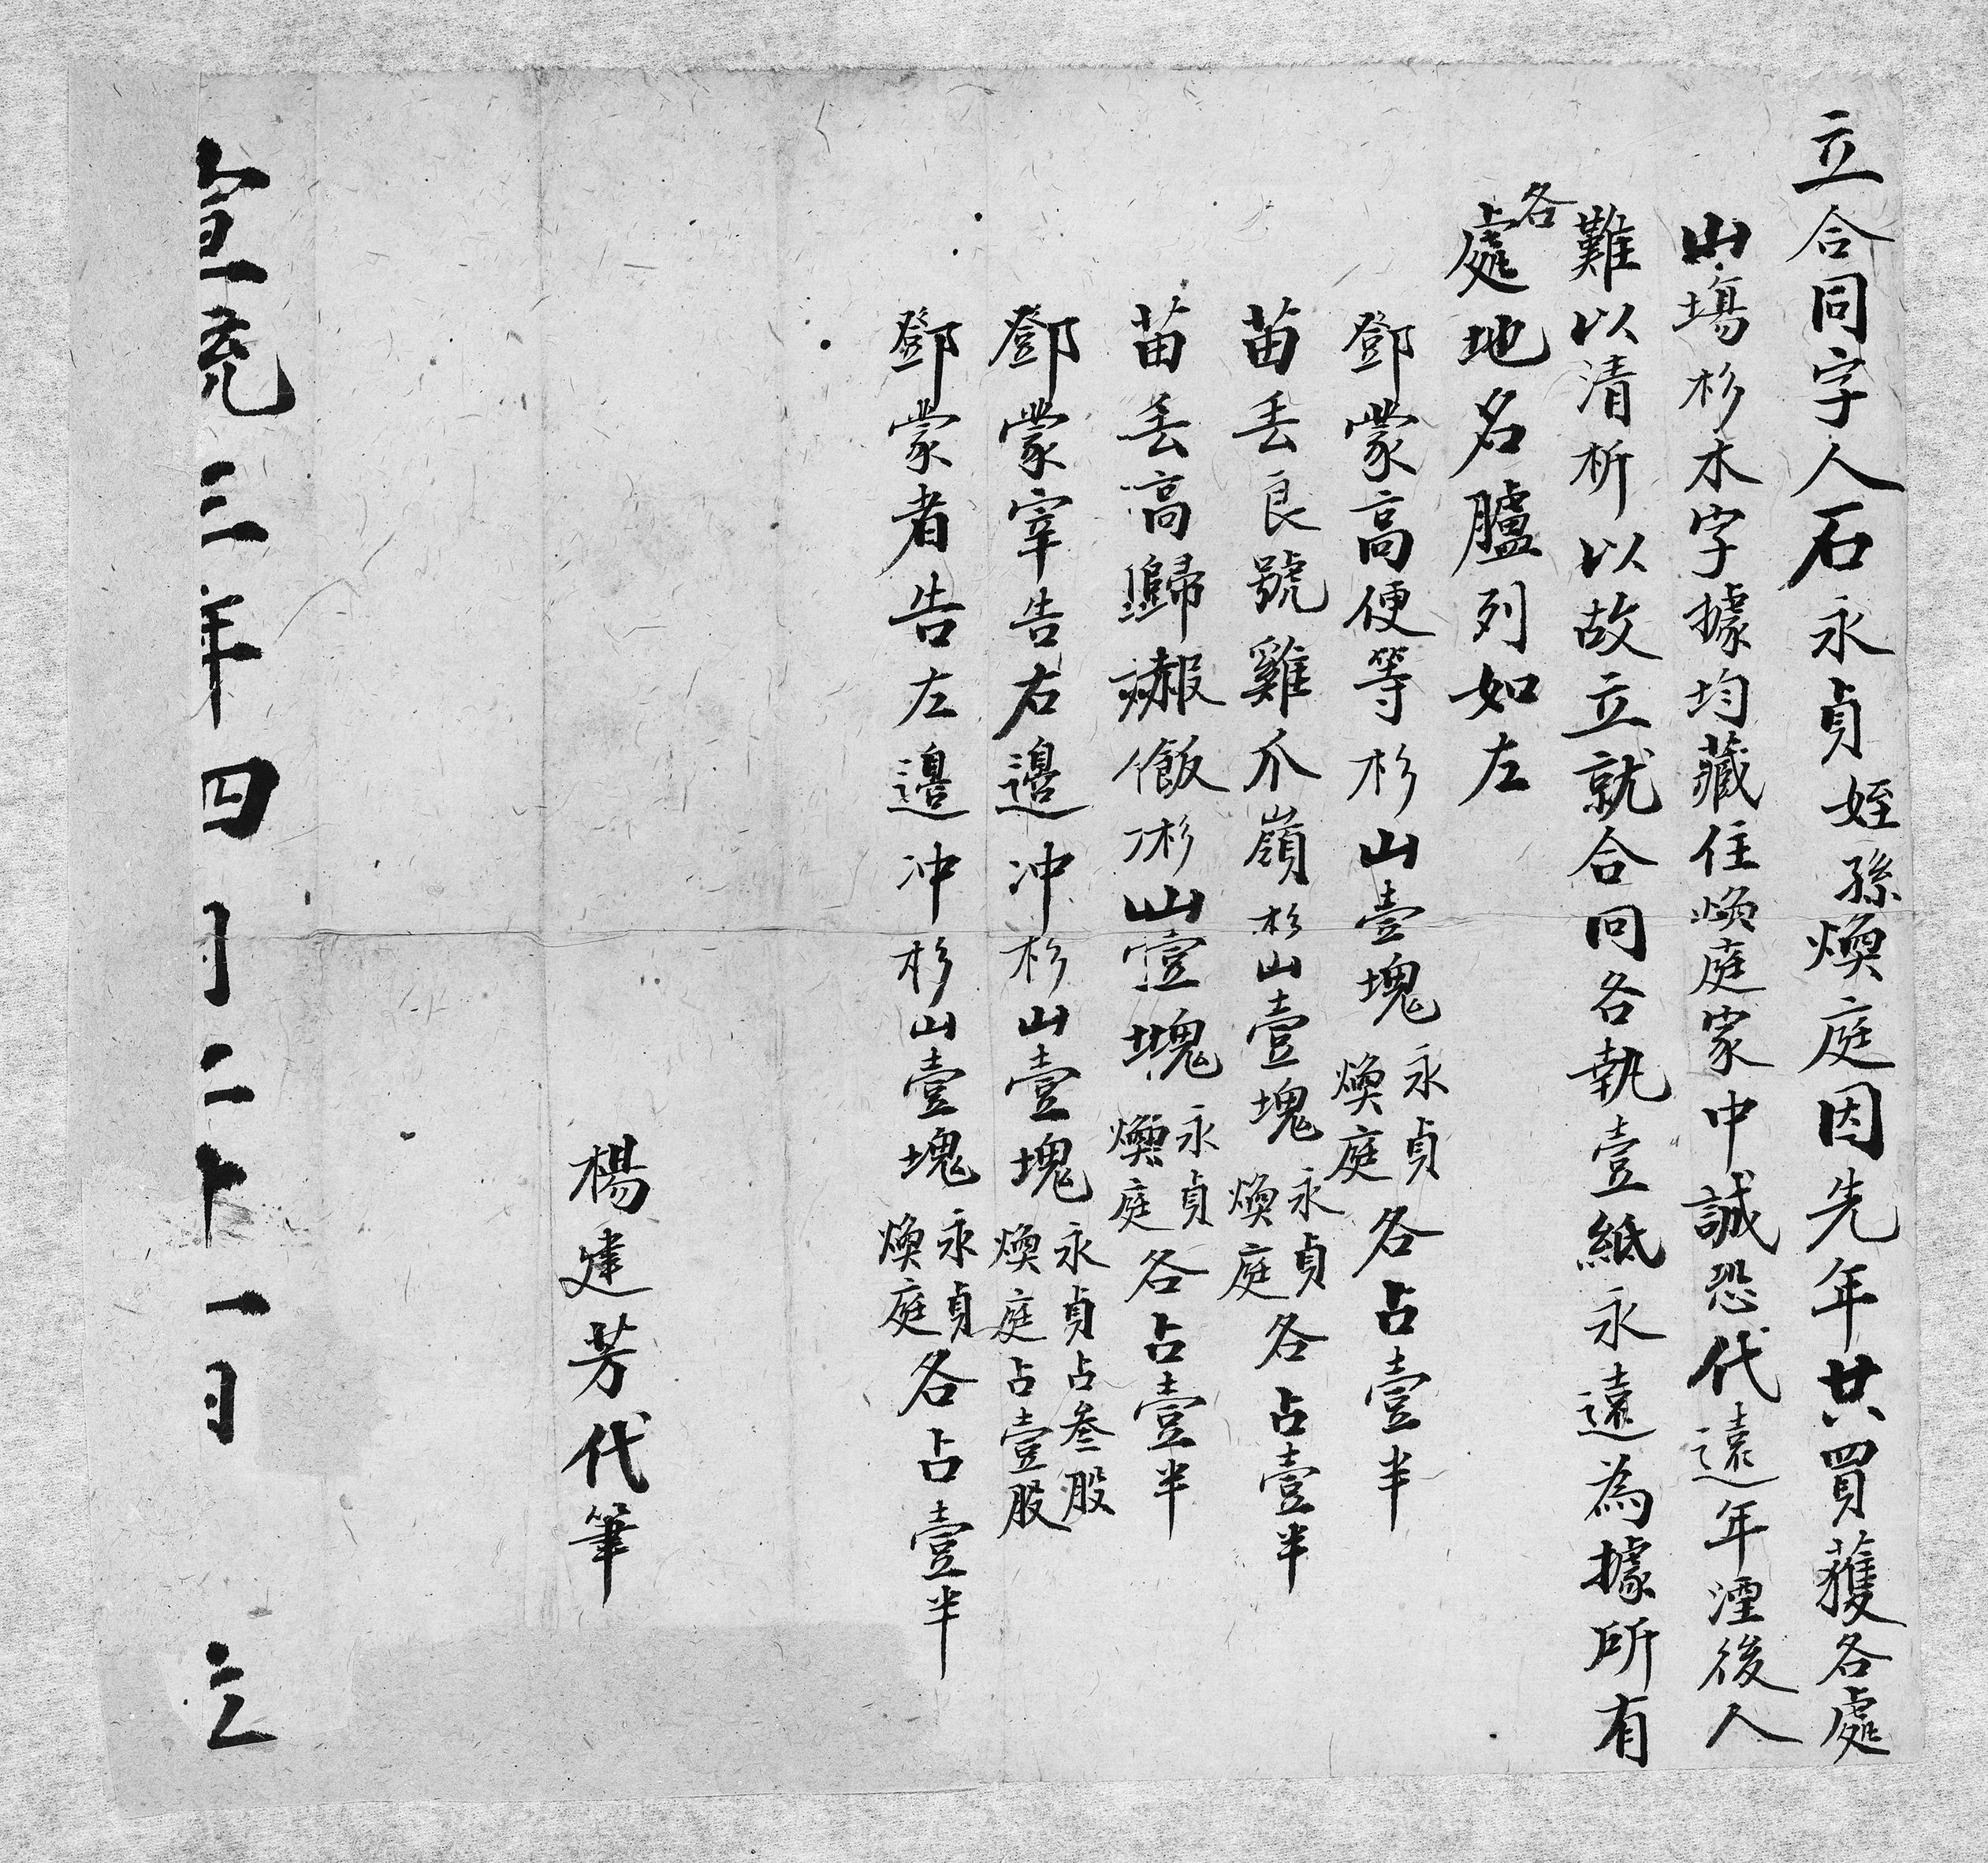 立合同字人石永貞姪孫煥庭因先年共買獲各處
山塲杉木字據均藏住煥庭家中誠恐代遠年湮後人
難以清析以故立就合同各執壹紙永遠為據所有
各處地名臚列如左
鄧蒙高便等杉山壹塊永貞煥庭各占壹半
苗丢良號雞爪嶺杉山壹塊永貞煥庭各占壹半
苗丢高歸飯杉山壹塊永貞煥庭各占壹半
鄧蒙宰告右邊冲杉山壹塊永貞占叁股煥庭占壹股
鄧蒙者告左邊冲杉山壹塊永貞煥庭各占壹半
楊建芳代筆
宣統三年四月二十一日立